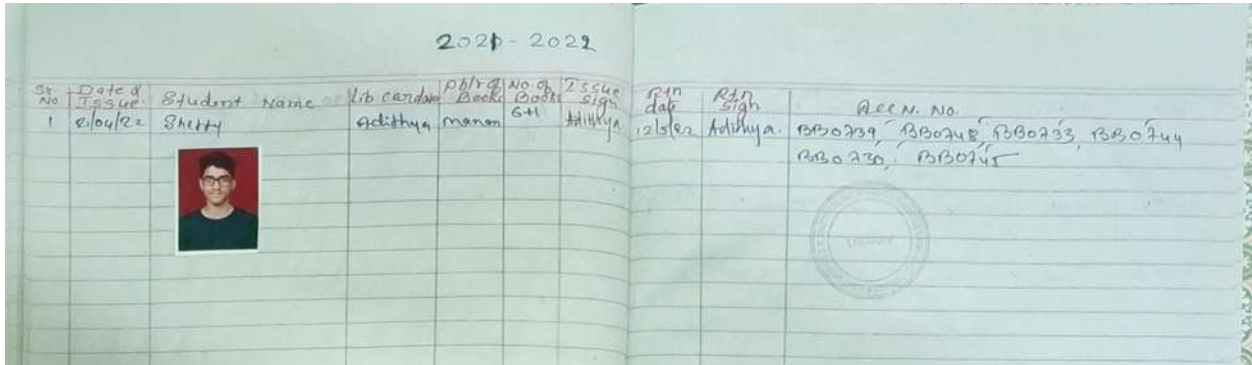 2021-2022
Sr. No Date of Issue Student Name Lib card No of Books No. of Books Issue sign Rtn date Rtn sign Accn. No.
1 2/04/22 Shetty Adithya manan 6+1 Adithya 12/5/22 Adithya. BB0739, BB0748, BB0733, BB0744
BB0730, BB0745